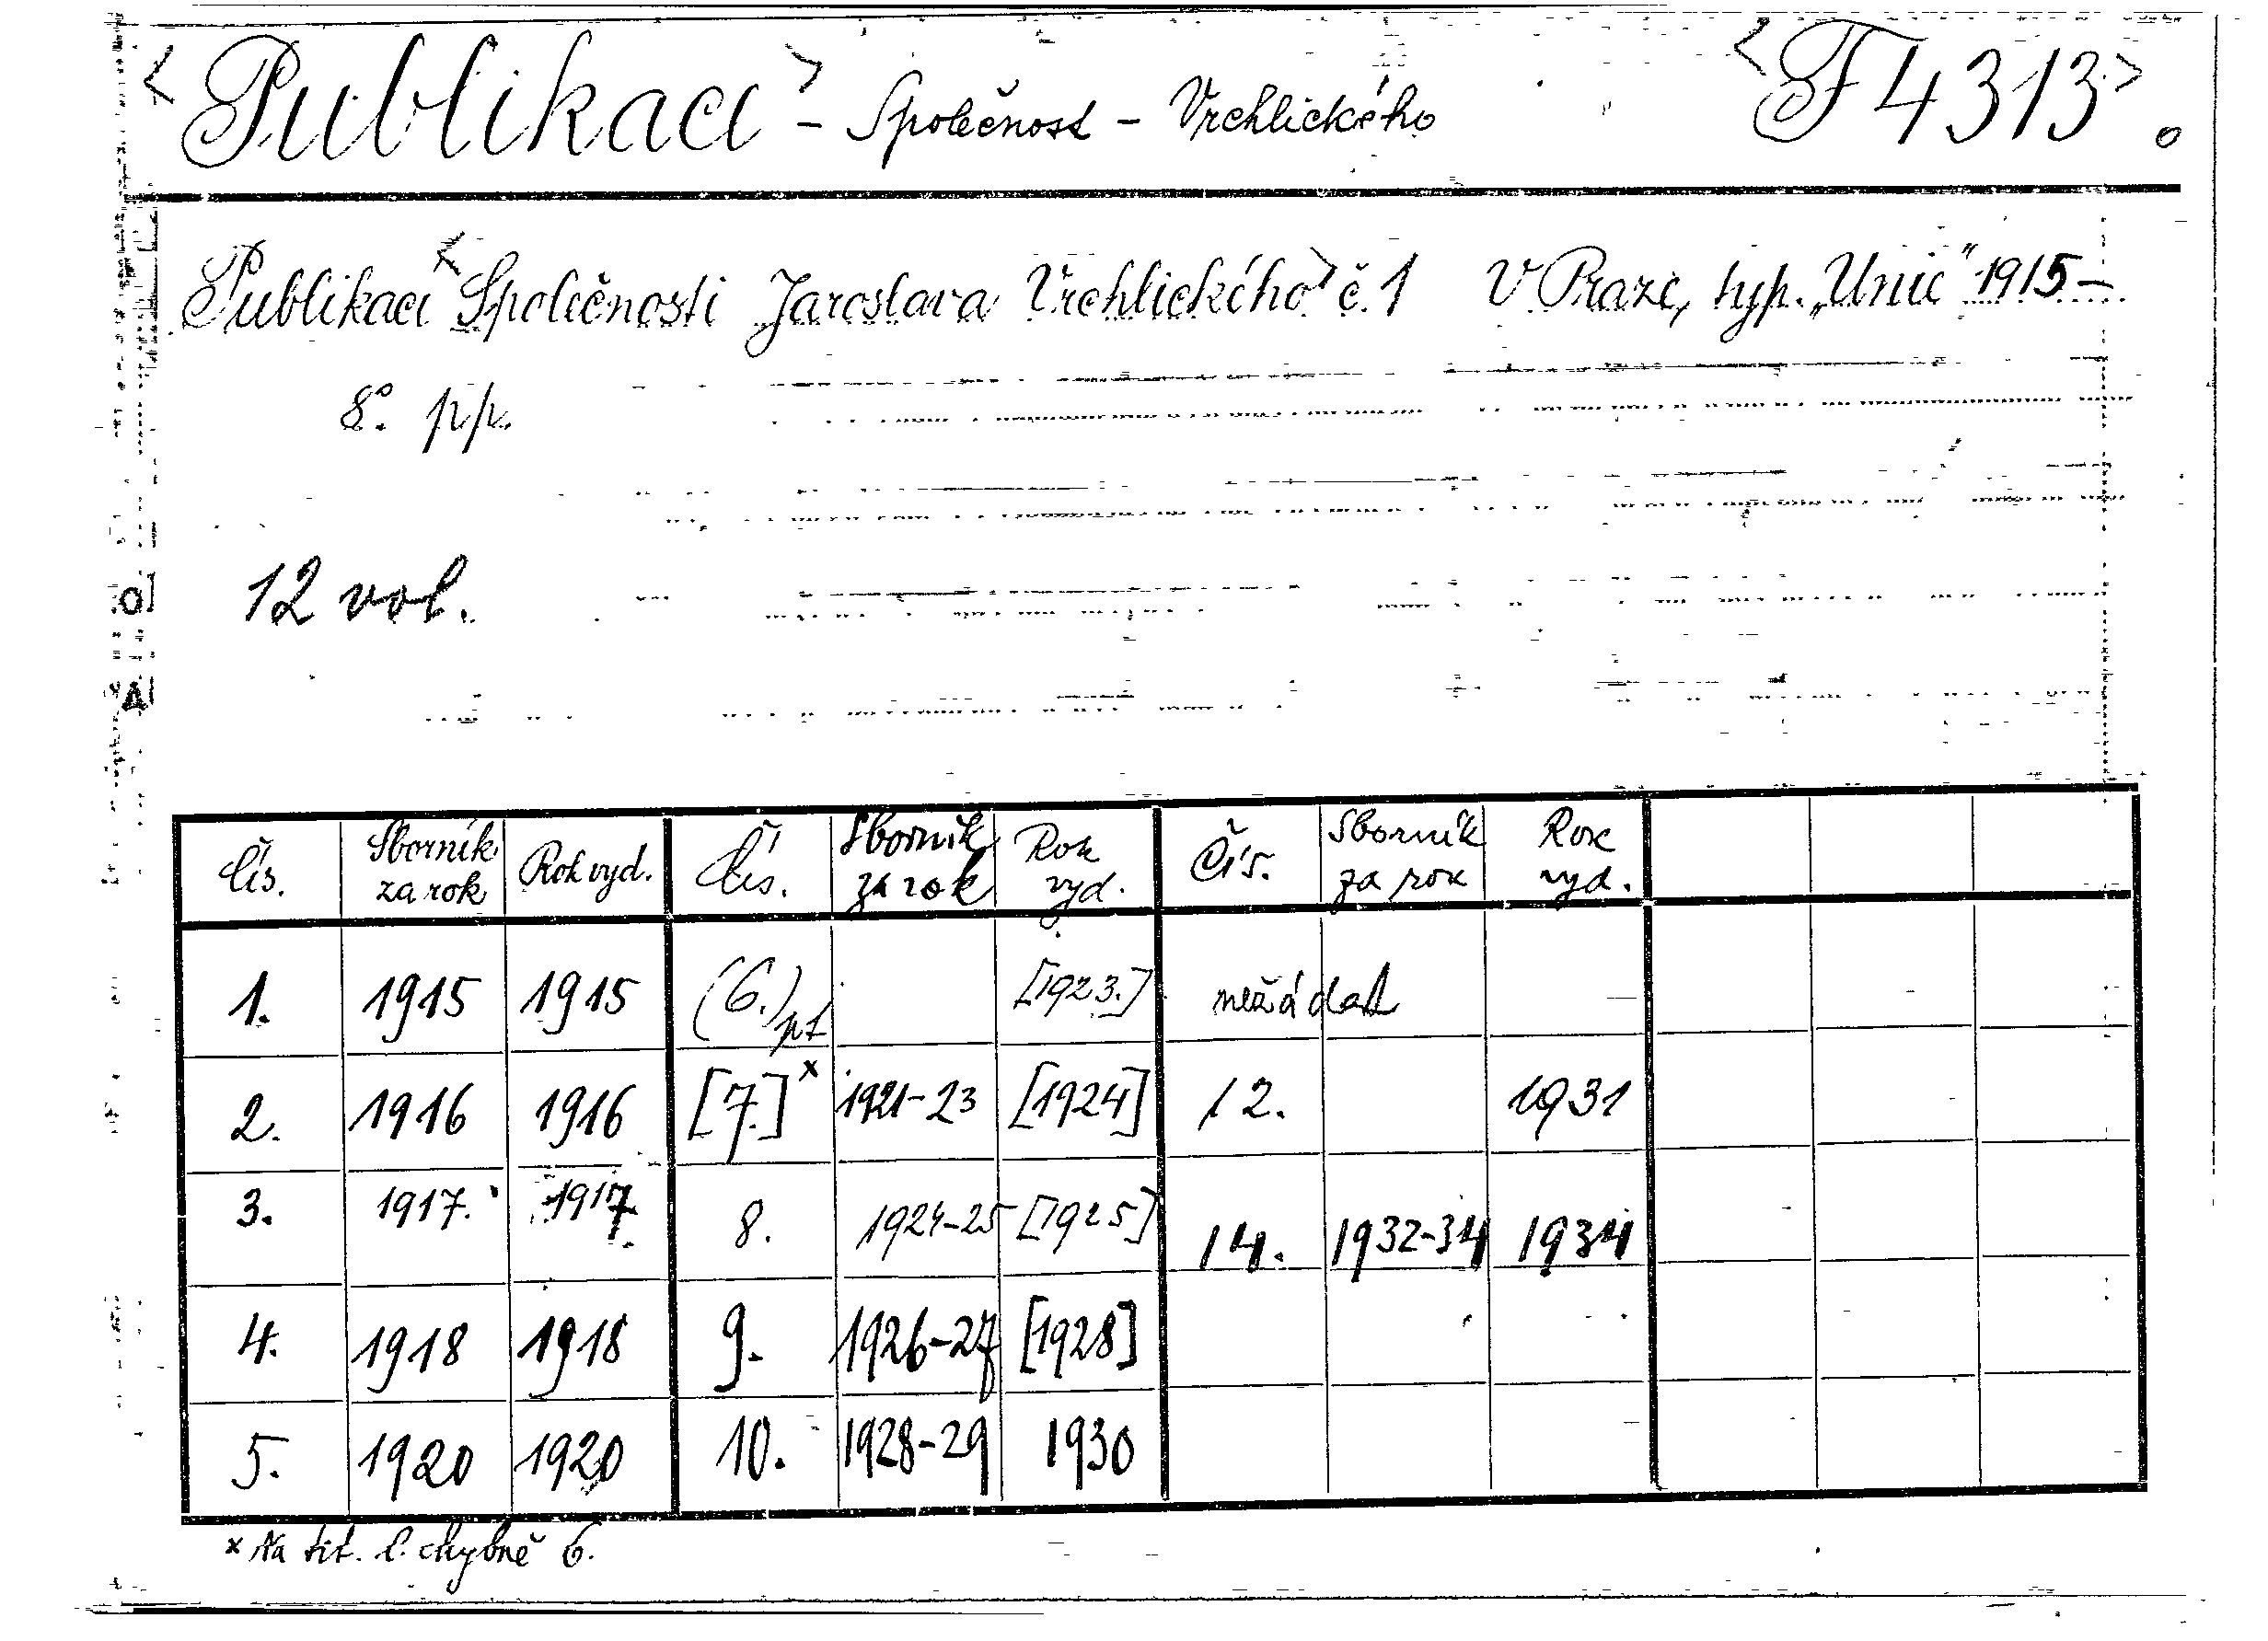 <Publikací> - Společnost - Vrchlického <F 4313>.
Publikací <Společnosti Jaroslava Vrchlického> č. 1 V Praze, typ. „Unie" 1915 —
8°. pp.
12 vol.
Čís. Sborník za rok Rok vyd. Čís. Sborník za rok Rok vyd. Čís. Sborník za rok Rok vyd.
1. 1915 1915 (6.) [1923.] nežádat
2. 1916 1916 [7.] x 1921-23 [1924] 12. 1931
3. 1917. 1917 8. 1924-25 [1925] 14. 1932-34 1934
4. 1918 1918 9. 1926-27 [1928]
5. 1920 1920 10. 1928-29 1930
x Na tit. l. chybně 6.